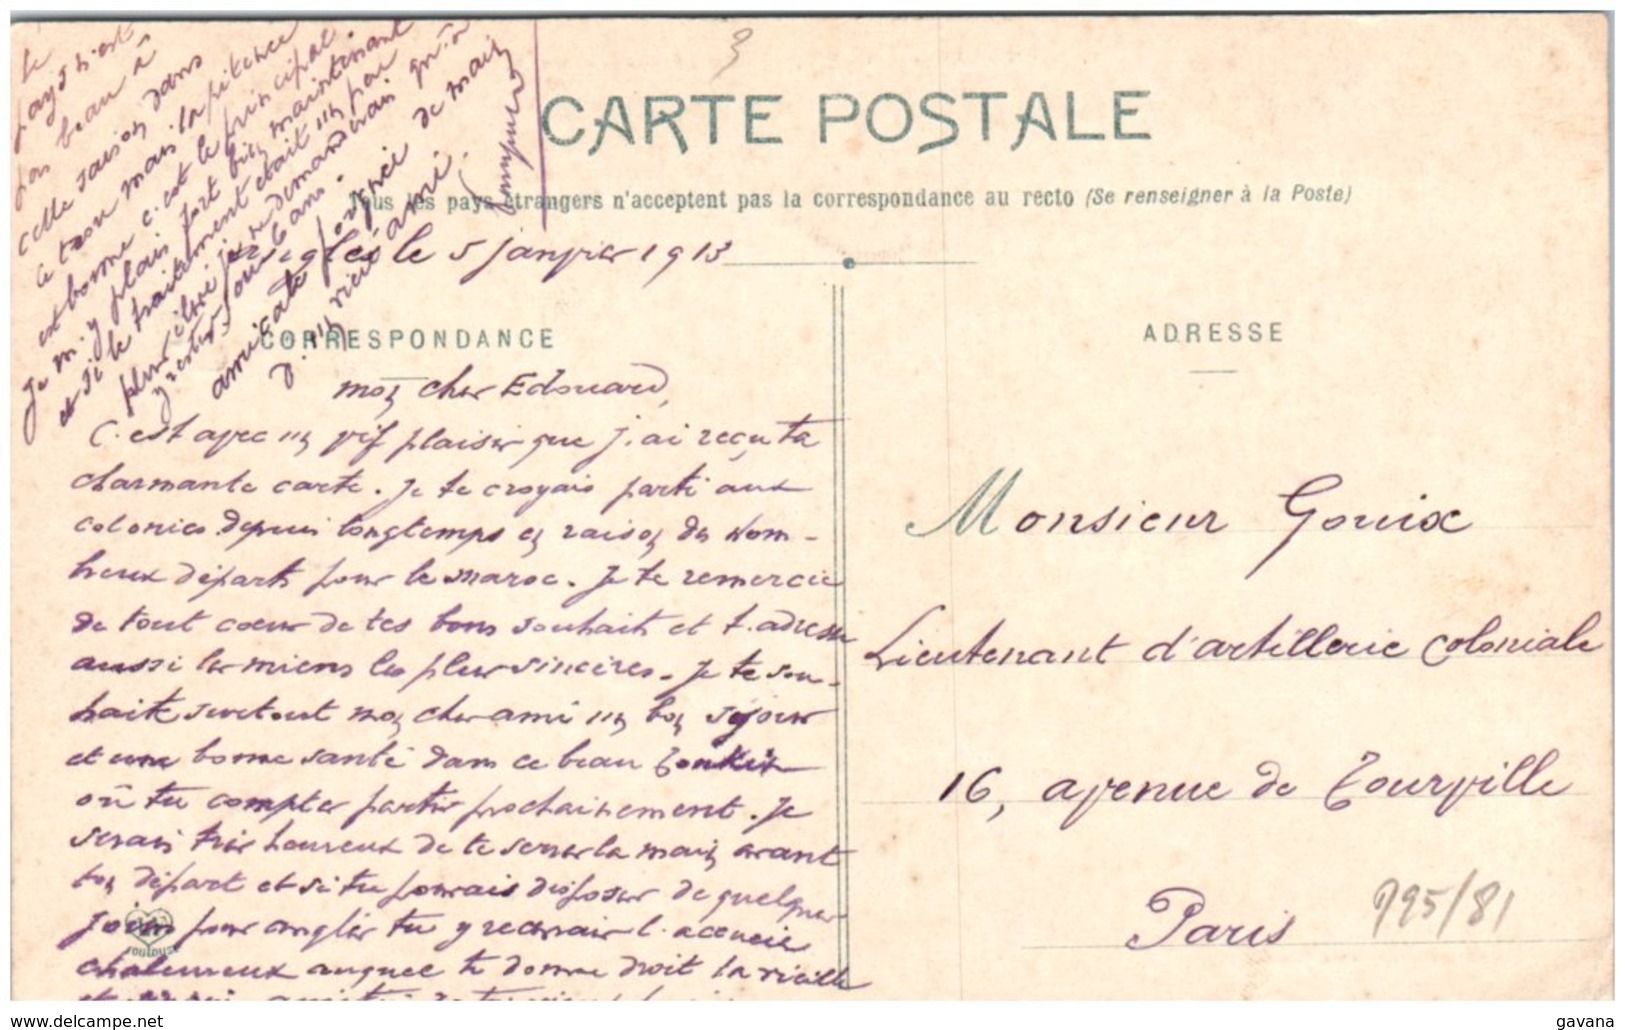 3
CARTE POSTALE
Tous les pays étrangers n'acceptent pas la correspondance au recto (Se renseigner à la Poste)
Anglès le 5 janvier 1913
CORRESPONDANCE
mon cher Edouard,
C'est avec un vif plaisir que j'ai reçu ta
charmante carte. Je te croyais parti aux
colonies depuis longtemps en raison des nom-
breux départs pour le maroc. Je te remercie
de tout cœur de tes bons souhaits et t'adresse
aussi les miens les plus sincères. Je te sou-
haite surtout mon cher ami un bon séjour
et une bonne santé dans ce beau Tonkin
où tu comptes partir prochainement. Je
serais très heureux de te serrer la main avant
ton départ et si tu pouvais disposer de quelques
jours pour anglès tu y recevrais l'accueil
chaleureux auquel te donne droit la vieille
et
le
pays n'est
pas beau à
cette saison dans
ce trou mais la pitance
est bonne c'est le principal.
Je m'y plais fort bien maintenant
et si le traitement était un peu
plus élevé je ne demanderais qu'à
y rester 5 ou 6 ans.
amicale poignée de main
d'un vieil ami.
ADRESSE
Monsieur Gouix
Lieutenant d'artillerie coloniale
16, avenue de Tourville
Paris
795/81
TOULOUSE
www.delcampe.net
gavana